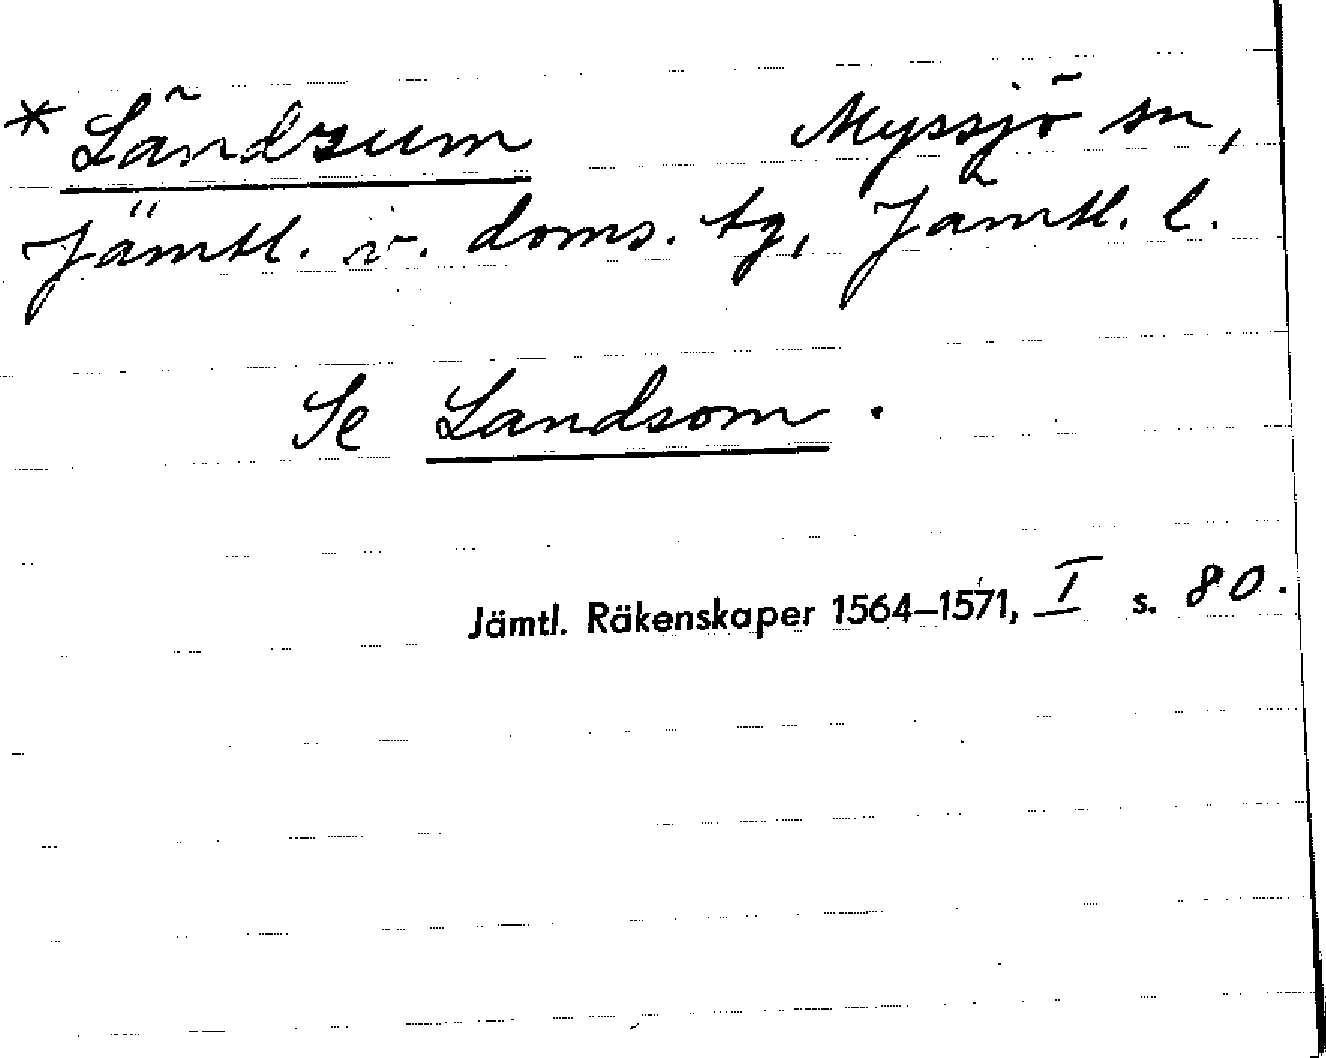 * Ländzum Myssjö sn,
Jämtl. v. doms. tg, Jämtl. l.
Se Landsom.
Jämtl. Räkenskaper 1564–1571, I s. 80.